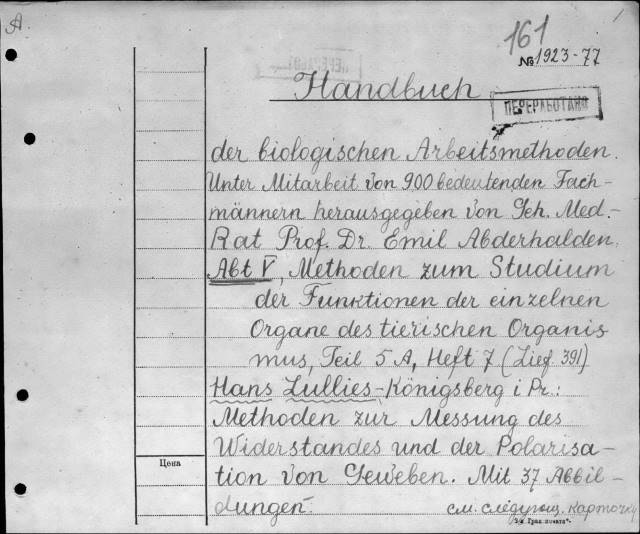 A.
1
161
№ 1923-77
Handbuch
ПЕРЕРАБОТАНО
der biologischen Arbeitsmethoden.
Unter Mitarbeit von 900 bedeutenden Fach-
männern herausgegeben von Geh. Med.-
Rat Prof. Dr. Emil Abderhalden.
Abt V, Methoden zum Studium
der Funktionen der einzelnen
Organe des tierischen Organis
mus, Teil 5 A, Heft 7 (Lief. 391)
Hans Lullies-Königsberg i Pr.:
Methoden zur Messung des
Widerstandes und der Polarisa-
Цена
tion von Geweben. Mit 37 Abbil-
dungen.
см. следующ. карточку